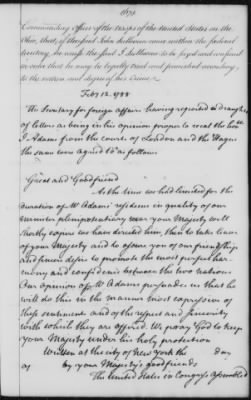 Commanding officer of the troops of the United States on the
Ohio, that, if the said John Sullivan come within the federal
territory, he cause the said J. Sullivan to be seized and confined
in order that he may be legally tried and punished according
to the nature and degree of his Crime
Feby 12. 1788
The Secretary for foreign affairs having reported draughts
of letters as being in his opinion proper to recal the honble
J. Adams from the court of London and the Hague
the same were agreed to as follows
Great and Good friend
As the time we had limited for the
duration of Mr Adams' residence in quality of our
minister plenipotentiary near your Majesty will
shortly expire we have directed him, then to take leave
of your Majesty and to assure you of our friendship
and sincere desire to promote the most perfect har-
mony and confidence between the two nations
Our opinion of Mr Adams persuades us that he
will do this in the manner most expressive of
these sentiments and of the respect and sincerity
with which they are offered. We pray God to keep
your Majesty under his holy protection
Written at the city of New York the day
of by your Majesty's good friends
The United States in Congress Assembled